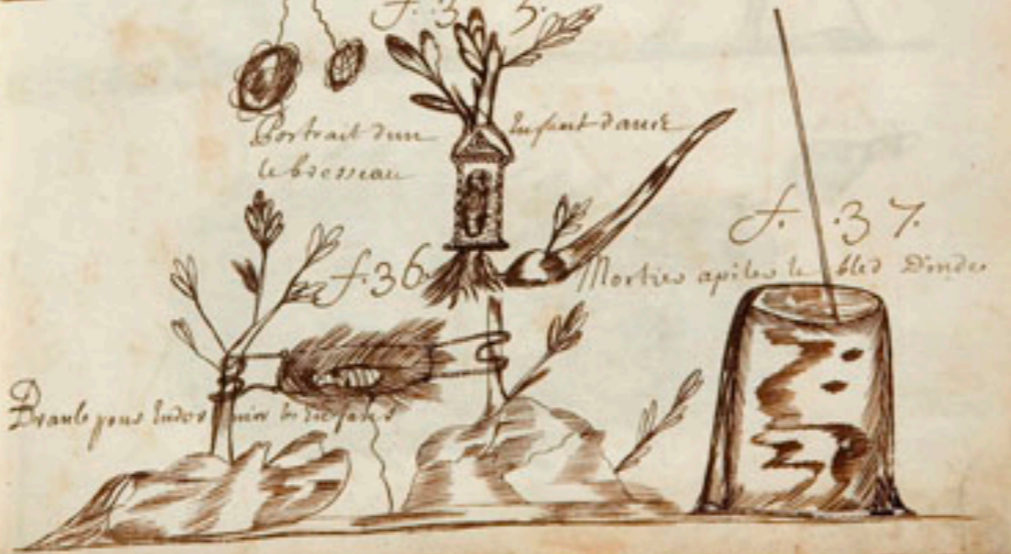 f. 3 5.
Portrait dun Enfant dans
le bresseau
f. 37.
f. 36.
Mortier apiler le bled Dinde
Branle pour Endormir les Enfans